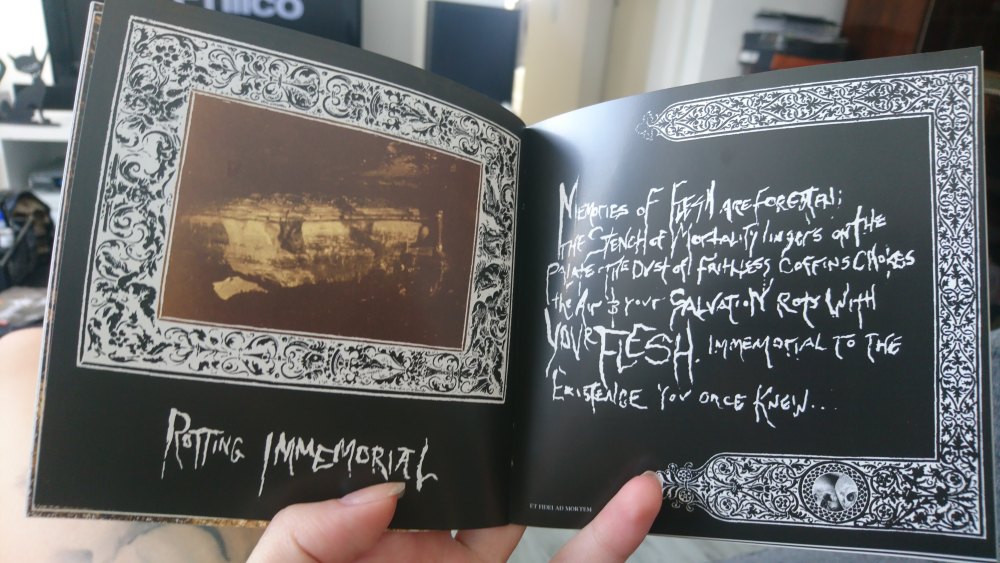 ROTTING IMMEMORIAL
MEMORIES OF FLESH ARE FORGOTTEN;
THE STENCH OF MORTALITY LINGERS ON THE
PALATE. THE DUST OF FAITHLESS COFFINS CHOKES
THE AIR & YOUR SALVATION ROTS WITH
YOUR FLESH. IMMEMORIAL TO THE
EXISTENCE YOU ONCE KNEW...
ET FIDEI AD MORTEM